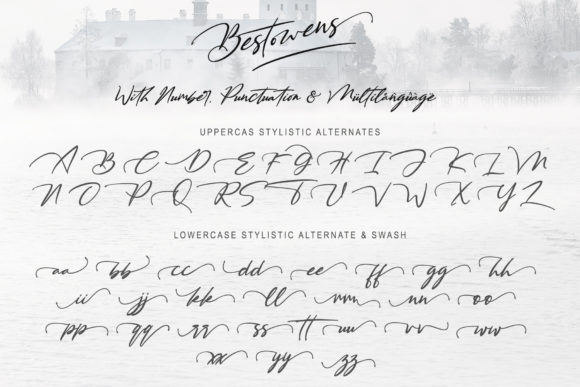 Bestowens
With Number, Punctuation & Mültilángüàge
UPPERCAS STYLISTIC ALTERNATES
A B C D E F G H I J K L M
N O P Q R S T U V W X Y Z
LOWERCASE STYLISTIC ALTERNATE & SWASH
aa bb cc dd ee ff gg hh
ii jj kk ll mm nn oo
pp qq rr ss tt uu vv ww
xx yy zz